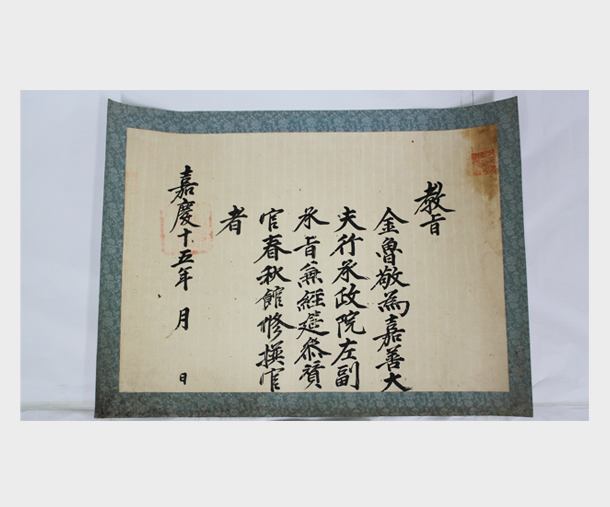 教旨
金魯敬為嘉善大
夫行承政院左副
承旨兼經筵叅贊
官春秋館修撰官
者
嘉慶十五年 月 日